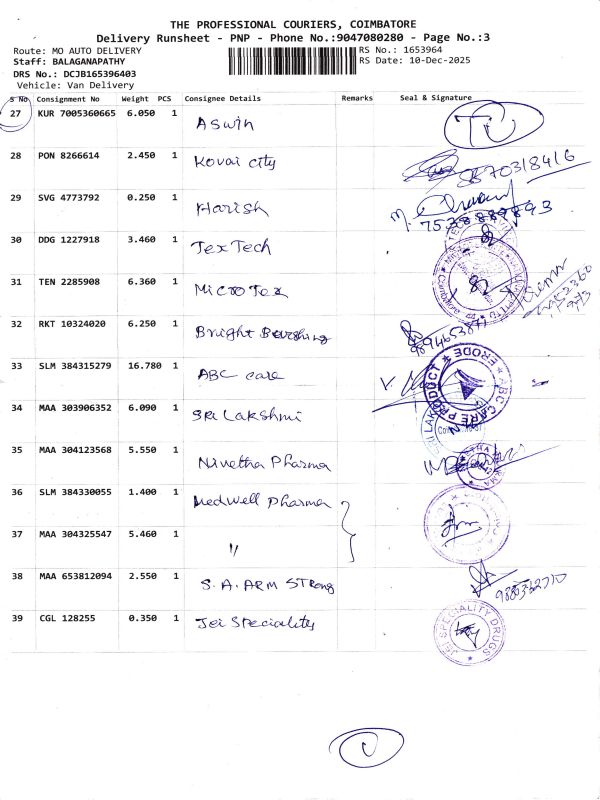 THE PROFESSIONAL COURIERS, COIMBATORE
Delivery Runsheet - PNP - Phone No.:9047080280 - Page No.:3
Route: MO AUTO DELIVERY RS No.: 1653964
Staff: BALAGANAPATHY RS Date: 10-Dec-2025
DRS No.: DCJB165396403
Vehicle: Van Delivery
S No Consignment No Weight PCS Consignee Details Remarks Seal & Signature
27 KUR 7005360665 6.050 1 Aswin
28 PON 8266614 2.450 1 Kovai city 8870318416
29 SVG 4773792 0.250 1 Harish
30 DDG 1227918 3.460 1 Tex Tech
31 TEN 2285908 6.360 1 Micro Tex
32 RKT 10324020 6.250 1 Bright
33 SLM 384315279 16.780 1 ABC care ABC CARE PRODUCT ERODE
34 MAA 303906352 6.090 1 Sri Lakshmi
35 MAA 304123568 5.550 1 Nivetha Pharma
36 SLM 384330055 1.400 1 Medwell Pharma
37 MAA 304325547 5.460 1 "
38 MAA 653812094 2.550 1 S.A. ARM Strong
39 CGL 128255 0.350 1 Jei Speciality JEI SPECIALITY DRUGS